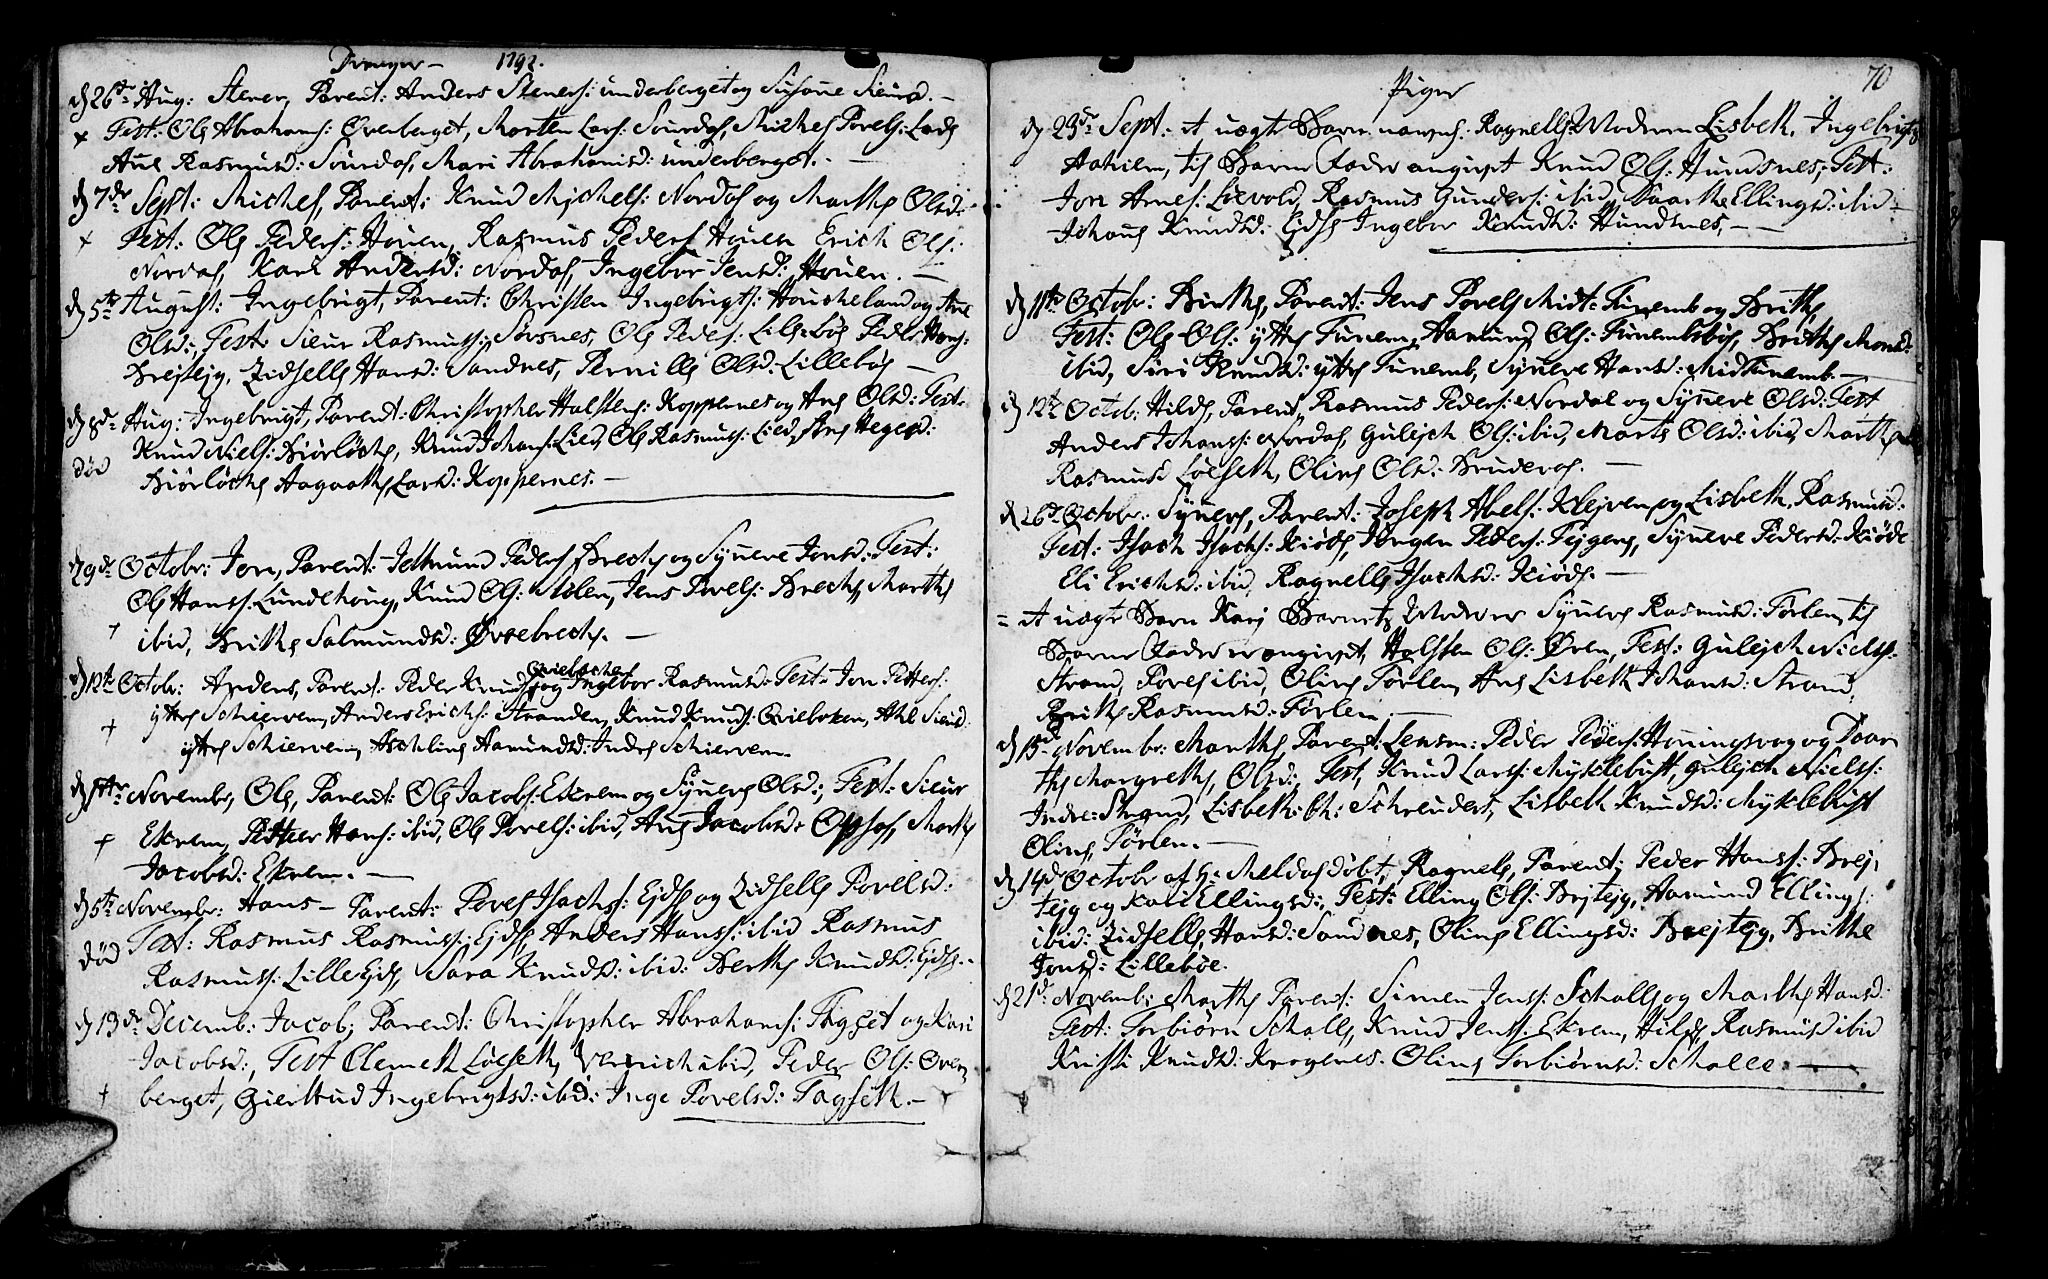 Drenger – 1792.
d 26de Aug: Stener, Parent: Anders Steners: underberget og Susane Siurd. –
+ Test: Ole Abrahams: Øverberget, Morten Lars: Sourdal, Michel Povels: Lade
Ane Rasmusd: Sourdal, Mari Abrahamsd: underberget. –
d 7de Sept: Michel, Parent: Knud Michels: Nordal og Marthe Olsd:
+ Test: Ole Peders: Houen, Rasmus Peders Houen Erich Ols:
Nordal, Kari Andersd: Nordal, Ingebor Jensd: Houen. –
d 5te August: Ingebrigt, Parent: Christen Ingebrigts: Houcheland og Ane
Olsd:, Test: Siur Rasmuss: Sørsnes, Ole Peders: Lilebøe Peder Hans:
Brejtejg, Zidselle Hansd: Sandnes, Pernille Olsd: Lillebøe –
d 8de Aug: Ingebrigt, Parent: Christopher Halstens: Koppernes og Ane Olsd: Test:
Knud Niels: Biørløche, Knud Johans: Lied, Ole Rasmuss: Lied,
død Biørløche Aagaathe Larsd: Koppernes. –
d 9de Octobr: Jon, Parent: Jetmund Peders Breche og Synneve Jonsd: Test:
Ole Hanss. Lundehoug, Knud Ols: Stølen, Jens Povels: Breche, Marthe
+ ibid, Brithe Salmundsd: Øvrebreche. –
d 12te Octobr: Anders, Parent: Peder Knuds: Qvieloche og Ingebor Rasmusd: Test: Jon Pitters:
+ ytre Schierven, Anders Erichs: Stranden, Knud Knuds: Qvieloken, Ahl Siurd:
ytre Schierven, Ascheline Aamundsd: Indre Schierven.
d 1ste Novembr, Ole, Parent: Ole Jacobs: Ekrem og Synneve Olsd:, Test: Siur
+ Ekrem, Pitter Hans: ibid, Ole Povels: ibid, Ane Jacobsd: Opsal, Marthe
Jacobsd: Ekrem. –
d 5te Novembr: Hans – Parent: Povel Isachs: Ejde og Zidselle Povelsd:
død Test: Rasmus Rasmuss: Ejde, Anders Hanss: ibid Rasmus
Rasmuss: Lille Ejde, Sara Knudsd: ibid: Berthe Knudsd: Ejde. –
d 13de Decemb: Jacob, Parent: Christopher Abrahams: Tagset og Kari
Jacobsd:, Test Clemeth Løeseth, Verrich ibid, Peder Ols: Over
+ berget, Giertrud Ingebrigtsd: ibid: Inge Povelsd: Tagseth. –
70
Piger
d. 23de Sept: et uægt Barn navnl: Ragnelle Moderen Lisbeth Ingebrigtsd
Aahiem, til Barne Fader angivet Knud Ols: Hundsnes, Test:
Jon Arnes: Løevold, Rasmus Gunders: ibid, Maarthe Ellingsd: ibid:
Johane Knudsd: Ejde Ingebor Knudsd: Hundsnes, –
d 11te Octobr: Birthe, Parent: Jens Povels Midt-Furenemb og Brithe,
Test: Ole Ols: ytre Furenem, Aamund Ols: Furenembsbøe, Brithe Monsd:
ibid, Siri Knudsd: ytre Furenemb, Synneve Hansd: Midfurenemb. –
d 12te Octob: Hilde, Parent, Rasmus Peders: Nordal og Synneve Olsd: Test
Anders Johanss: Nordal, Gulejch Ols: ibid, Marte Olsd: ibid, Marthe
Rasmusd Løeseth, Oline Olsd: Bruderol. –
d 26de Octobr: Synneve, Parent: Joseph Abels: Klejven og Lisbeth Rasmusd:
Test: Isach Isachs: Kiøde, Jørgen Peders: Tejgene, Synneve Pedersd: Kiøde
Eli Erichsd: ibid, Ragnelle Isachsd: Kiøde. –
= et uægte Barn Kari Barnets Moder er Synneve Rasmusd: Førlen, til
Barne Fader er angivet, Halsten Ols: Øren, Test: Gulejch Nielss:
Strand, Povel ibid, Oline Førlen, Ane Lisbeth Johansd: Strand,
Brithe Rasmusd: Førlen. –
d 15de Novembr: Marthe, Parent: Lensm: Peder Peders: Honingsvog og Maar
the Margrethe, Olsd: Test, Knud Larss: Myklebust, Gulejch Nielss:
Indre: Strand, Lisbeth Ch: Schreuders, Lisbeth Knudsd: Myklebust
Oline, Førlen. –
d 14de Octobr af H: Meldal døbt, Ragnele, Parent: Peder Hanss: Brej
tejg og Kari Ellingsd:, Test: Elling Ols: Brejtejg, Aamund Ellings:
ibid: Zidselle Hansd: Sandnes, Oline Ellingsd: Brejtejg, Brithe
Jonsd: Lillebøe.
d 21de Novemb: Marthe Parent: Simen Jens: Scholle og Marthe Hansd:
Test: Torbiørn Scholle, Knud Jens: Ekrem, Hilde Rasmusd ibid
Kristi Knudsd: Krogenes. Oline Torbiørnsd: Scholle. –